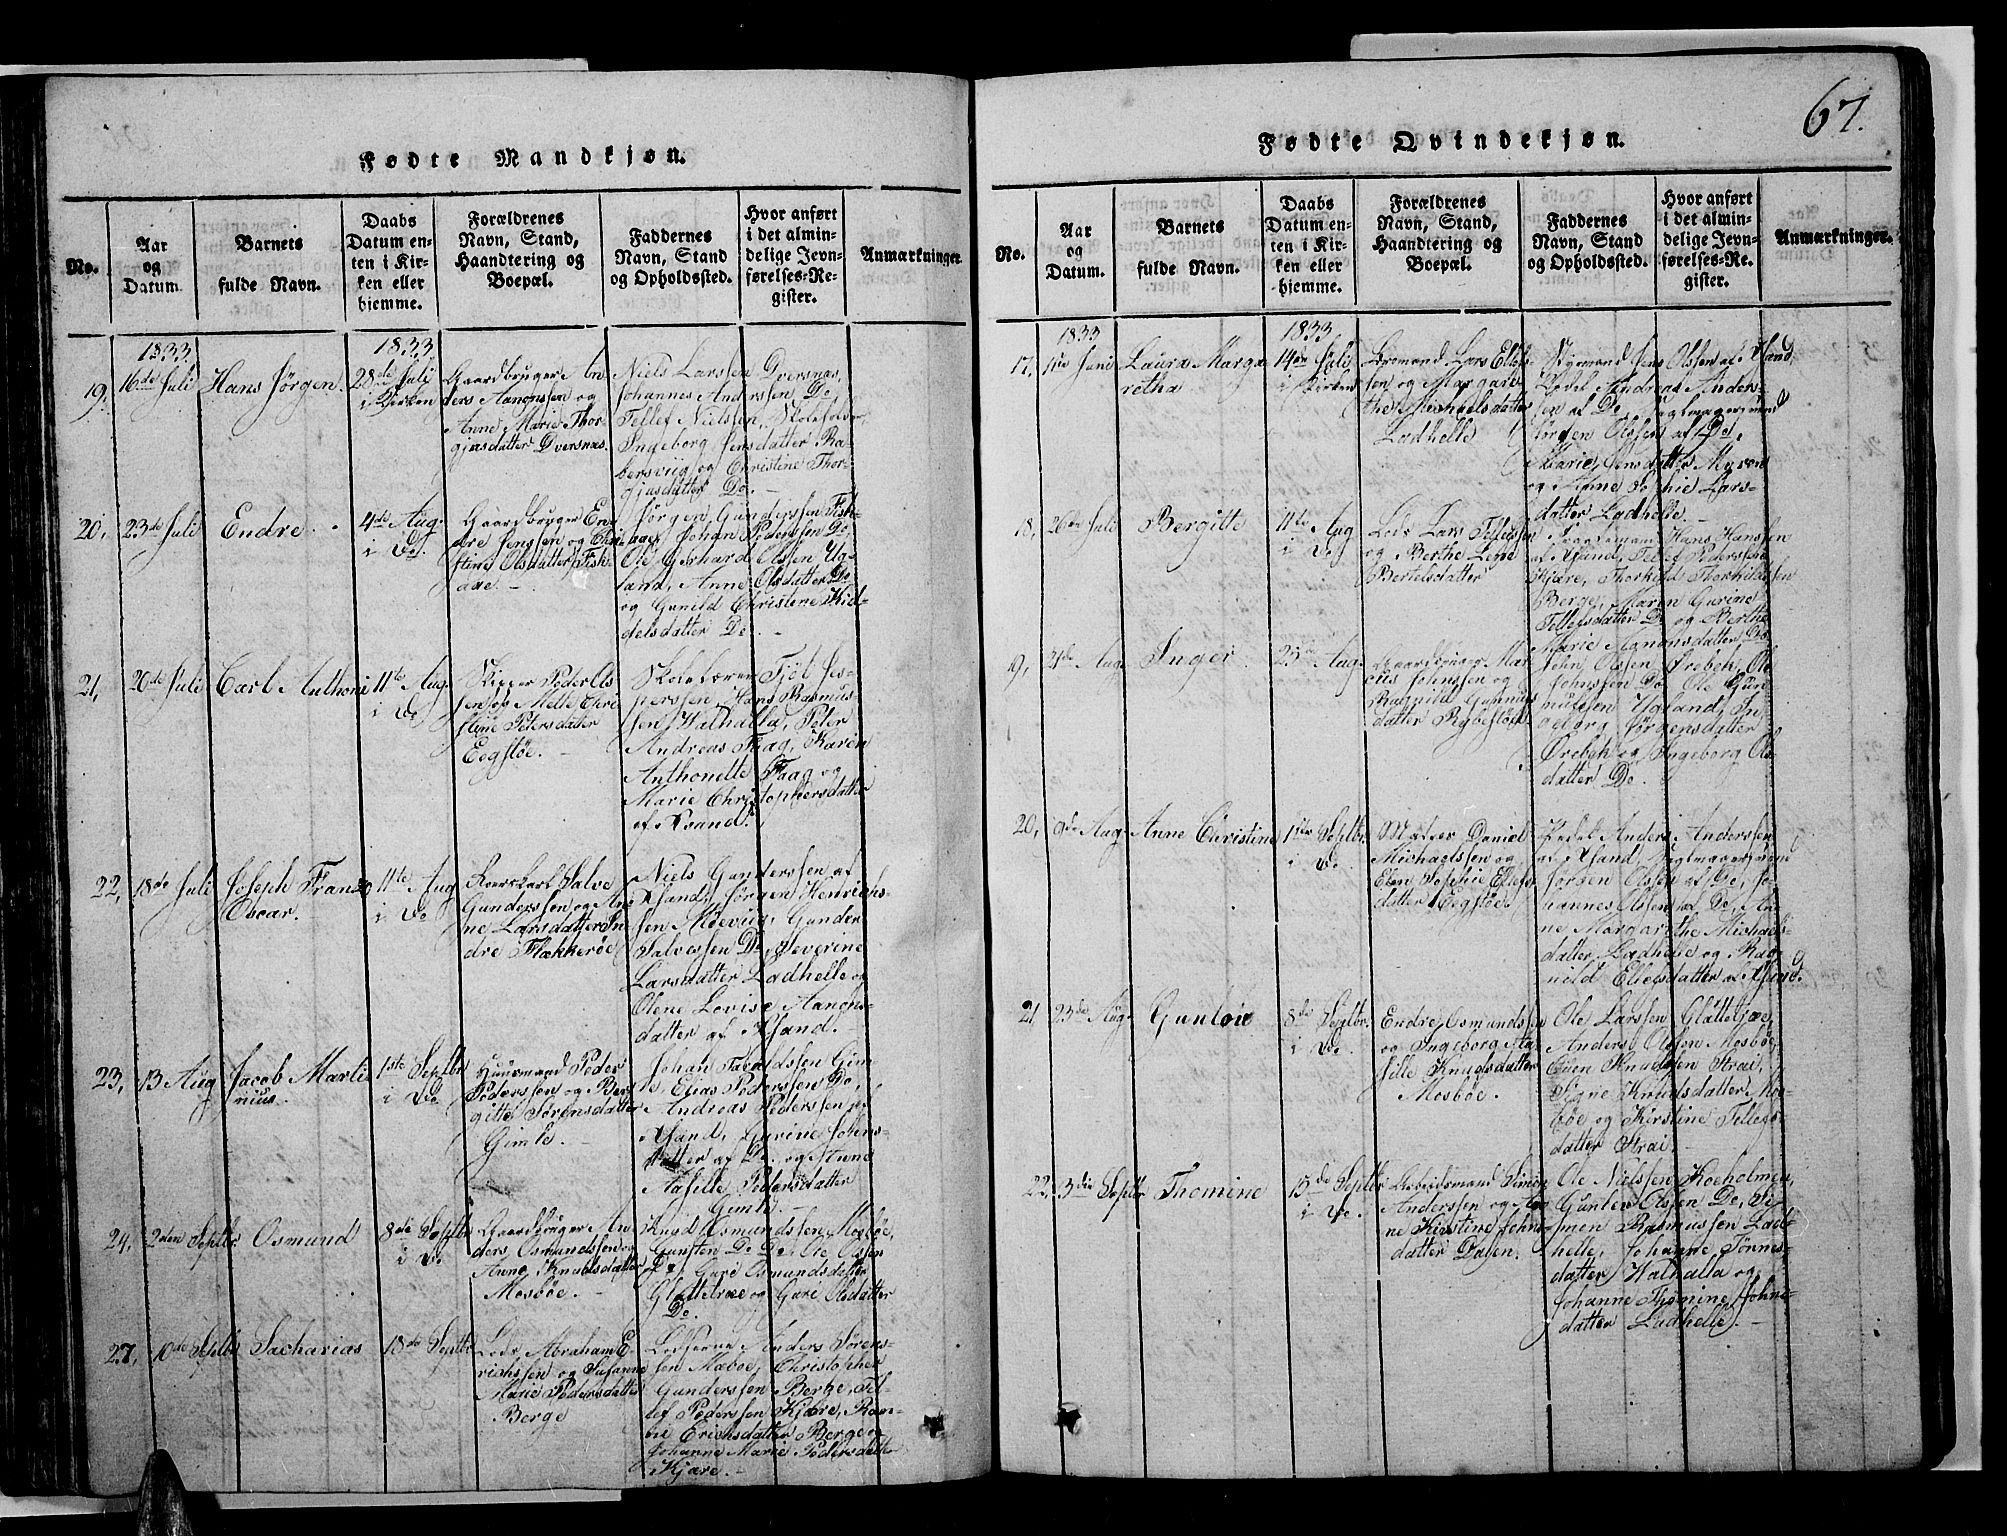 67.
Fødte Mandkjøn.
No.
Aar
og
Datum.
Barnets
fulde Navn.
Daabs
Datum en-
ten i Kir-
ken eller
hjemme.
Forældrenes
Navn, Stand,
Haandtering og
Boepæl.
Faddernes
Navn, Stand
og Opholdssted.
Hvor anført
i det almin-
delige Jevn-
førelses-Re-
gister.
Anmærkninger.
19,
1833.
16de Juli
Hans Jørgen.
1833.
28de Juli
i Kirken
Gaardbruger An-
ders Aanonssen og
Anne Marie Thor-
gjusdatter Dversnæs.
Niels Larssen Dversnæs,
Johannes Anderssen Do,
Tellef Nielssen,
Ingeborg Jensdatter Ra-
bersviig og Christine Thor-
gjusdatter Do. -
20,
23de Juli
Endre.
4de Aug.
i Do.
Gaardbruger En-
dre Jenssen og Chri-
stine Olsdatter Fisk-
aae. -
Jørgen Gunderssen Fisk-
aae, Johan Pederssen Do
Ole Gerhard Olssen Ug-
land, Anne Olsdatter Do
og Gunild Christene Kid-
delsdatter Do. -
21,
20de Juli
Carl Anthoni
11te Aug.
i Do
Skipper Peder Ols-
sen og Mette Chri-
stine Petersdatter
Eegstøe. -
Skolelærer Fjøt Jes-
perssen, Hans Rasmus-
sen Walhalla, Peter
Andreas Faag, Karen
Anthonette Faag og
Marie Christophersdatter
af Xsand.
22,
18de Juli
Joseph Frantz
Oscar.
11te Aug
i Do
Salve
Gunderssen og An-
ne Larsdatter In-
dre Flækkerøe
Niels Gunderssen af
Xsand, Jørgen Henrichs-
sen Møevig, Gunder
Salvessen Do, Severine
Larsdatter Ladhelle og
Olene Lovise Aanons-
datter af Xsand.
23,
13 Aug
Jacob Marti-
nius.
1ste Septbr
i Do
Huusmand Peder
Pederssen og Ber-
gitte Sørensdatter
Gimle. -
Johan Taraldssen Gim-
le, Elias Pederssen Do,
Andreas Pederssen af
Xsand, Gurine Johns-
datter af Do. og Anne
Aasille Pedersdatter
Gimle.
24,
2den Septbr.
Osmund
8de Septbr
i Do.
Gaardbruger An-
ders Osmundssen og
Anne Knudsdatter
Mosbøe. -
Knud Osmundssen Mosbøe,
Gunsten Do Do, Ole Olssen
Do, Gure Osmundsdatter
Glattetræe og Gure Olsdatter
Do.
27,
10de Septbr
Sacharias
18de Septbr
Lods Abraham E-
richssen og Susanne
Marie Pedersdatter
Berge
Lodserne Anders Sørens-
sen Mæbøe, Christopher
Gunderssen Berge, Tel-
lef Pederssen Kjære, Ran-
ni Erichsdatter Berge og
Johanne Marie Pedersdatter
Kjære. -
Fødte Qvindekjøn.
No.
Aar
og
Datum.
Barnets
fulde Navn.
Daabs
Datum en-
ten i Kir-
ken eller
hjemme.
Forældrenes
Navn, Stand,
Haandtering og
Boepæl.
Faddernes
Navn, Stand
og Opholdssted.
Hvor anført
i det almin-
delige Jevn-
førelses-Re-
gister.
Anmærkninger.
17,
1833
11te Juni
Laura Marga-
retha
1833
14de Juli
i Kirken
Lars Elief-
sen og Margare-
the Michaelsdatter
Ladhelle
Jens Olssen af Xsand,
Pedel Andreas Anders-
sen af Do, Vagtmagersvend
Jørgen Olssen af Do,
Marie Jensdatter Myren
og Anne Sophie Lars-
datter Ladhelle. -
18,
26de Juli
Bergitte
11te Aug
i Do.
Lods Lars Tellefssen
og Berthe Lene
Bertelsdatter
Hans Hanssen
af Xsand, Tellef Pederssen
Kjære, Thorkild Thorkildssen
Berge, Maren Gurine
Tellefsdatter Do og Berthe
Marie Aanonsdatter Do.
19,
2de Aug.
Inger
25de Aug.
Gaardbruger Mar-
cus Johnssen og
Ragnild Gunnufs-
datter Rybestøl
John Olssen Ørebek, Ole
Johnssen Do, Ole Gun-
nufssen Ugland, In-
geborg Jørgensdatter
Ørebek og Ingeborg Ols-
datter Do.
20,
9de Aug.
Anne Christine
1ste Septbr.
i Do.
Matros Daniel
Michaelssen og
Elen Sophie Eliefs-
datter Eegstøe.
Pedel Anders Anderssen
af Xsand, Vagtmagersvend
Jørgen Olssen af Do, Jo-
hannes Olssen af Do, An-
ne Margarethe Michaels-
datter Ladhelle og Rag-
nild Eliefsdatter af Xsand.
21
23de Aug.
Gunloie
8de Septbr.
i Do.
Endre Osmundssen
og Ingeborg Aa-
sille Knudsdatter
Mosbøe.
Ole Larssen Glattetræe,
Anders Olssen Mosbøe,
Even Knudssen Strai,
Signe Knudsdatter Mos-
bøe og Kirstine Tellefs-
datter Strai. -
22,
3die Septbr
Thomine
15de Septbr
i Do.
Arbeidsmand Simon
Anderssen og An-
ne Kirstine Johns-
datter Dalen.
Ole Nielssen Koeholmen,
Gunten Olssen Do, Si-
men Rasmussen Lad-
helle, Johanne Tønnes-
datter Walhalla og
Johanne Thomine Johns-
datter Ladhelle. -